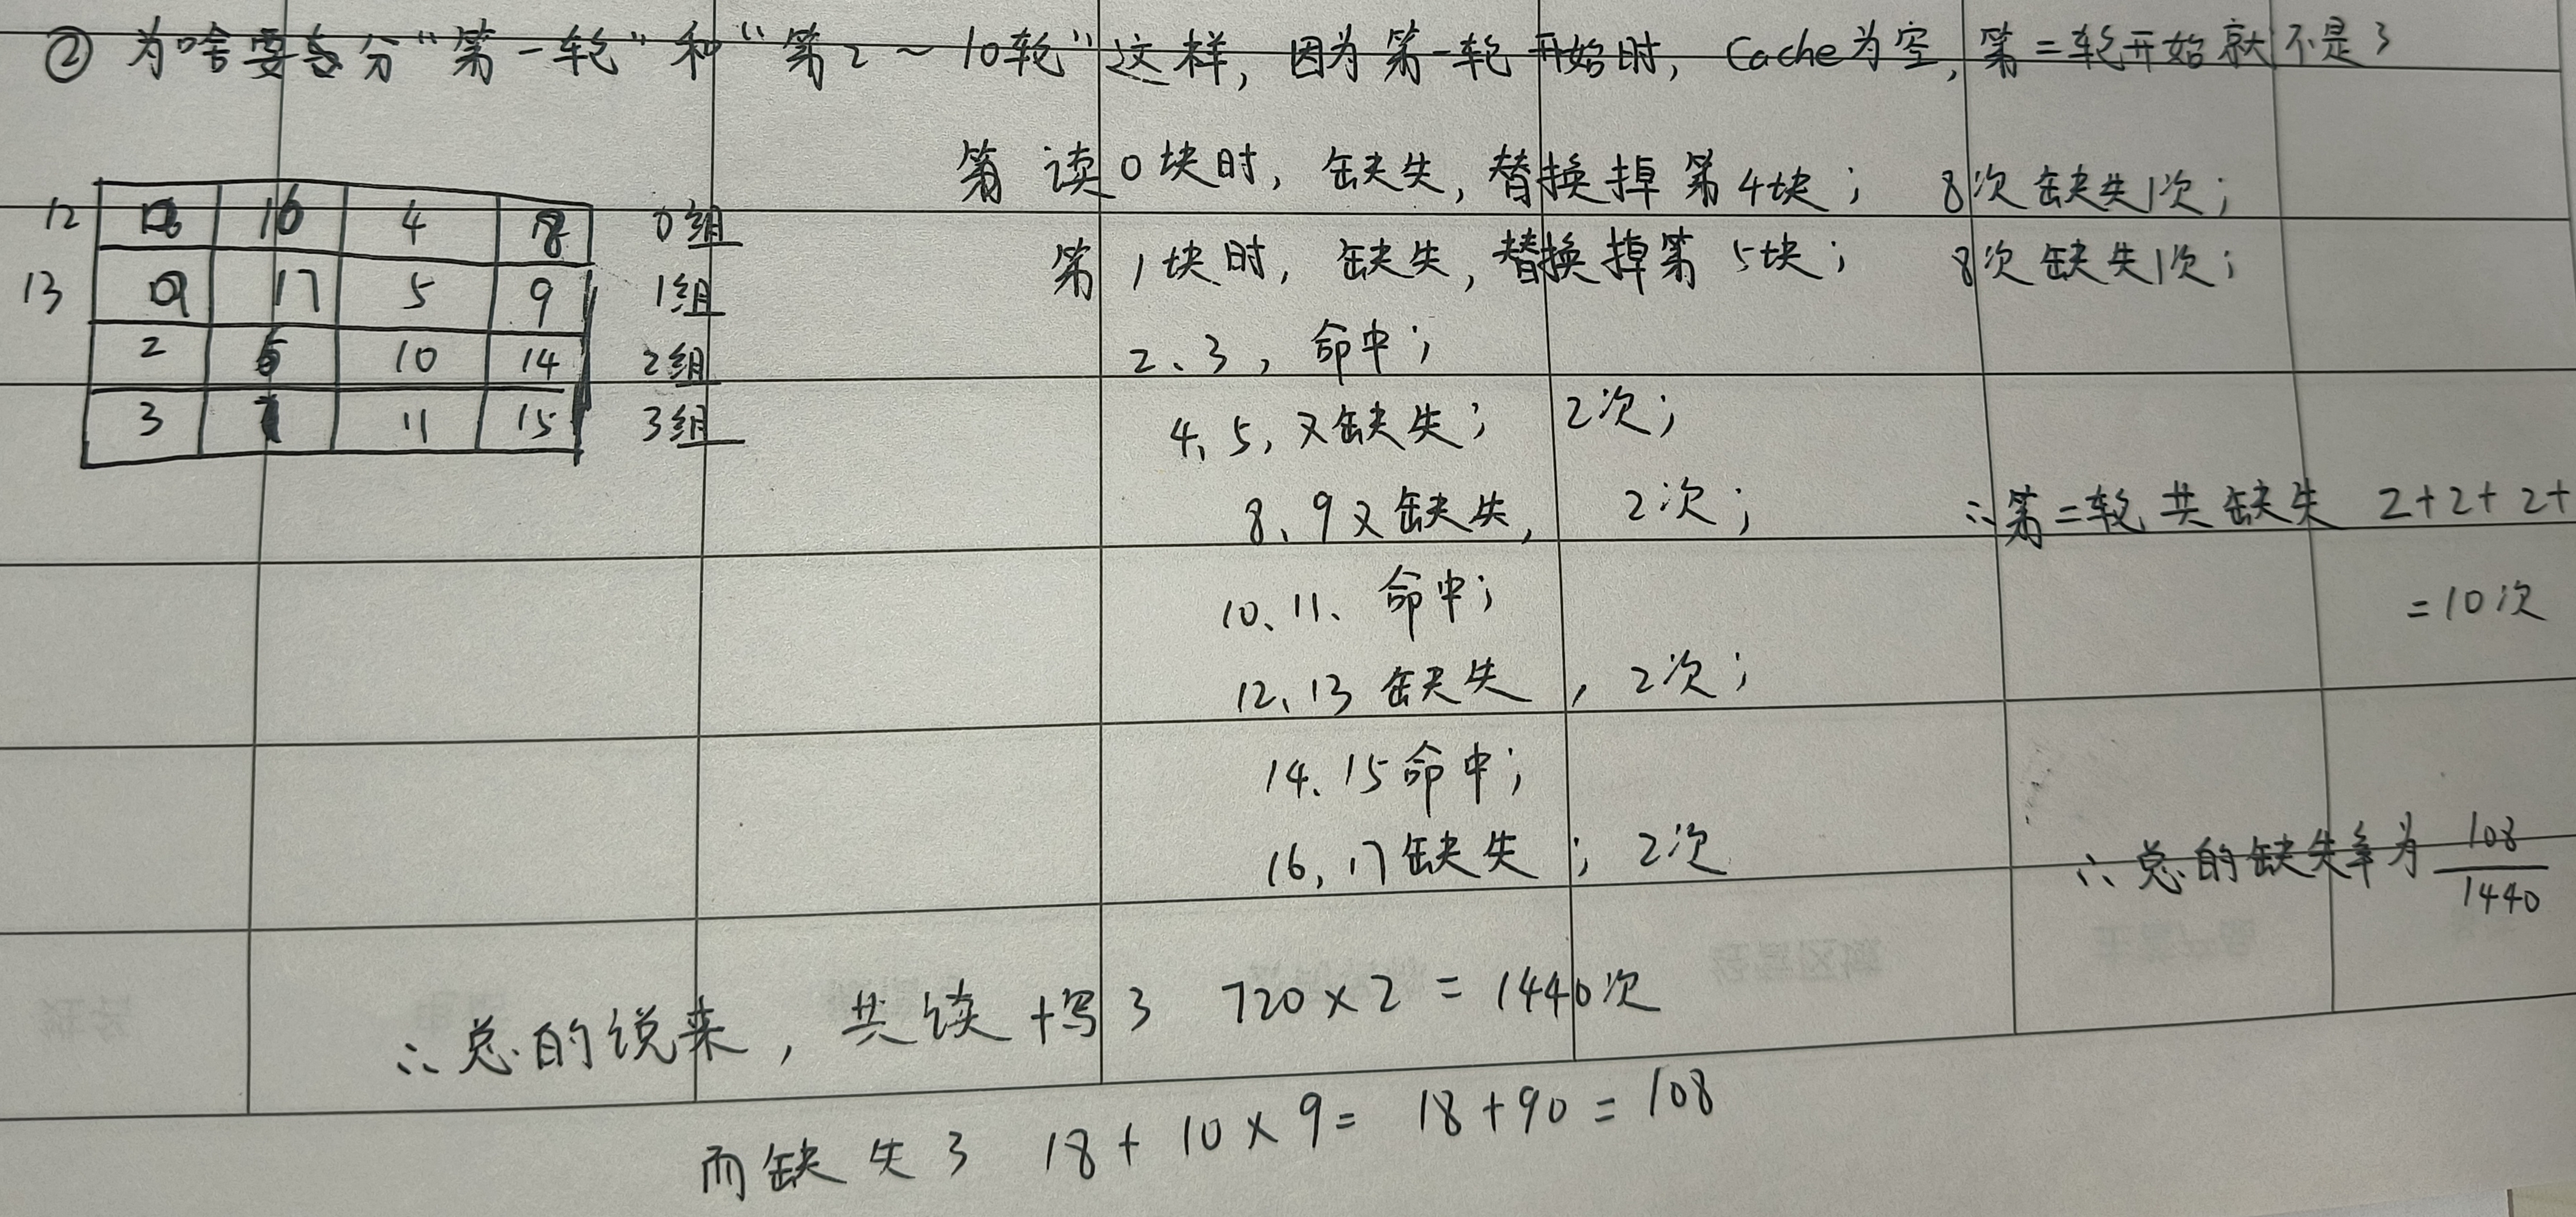 ② 为啥要分“第一轮”和“第2～10轮”这样,因为第一轮开始时,Cache为空,第二轮开始就不是了
读0块时,缺失,替换掉第4块; 8次缺失1次;
12 16 4 8 0组
第1块时,缺失,替换掉第5块; 8次缺失1次;
13 17 5 9 1组
2、3,命中;
2 6 10 14 2组
4、5,又缺失; 2次;
3 7 11 15 3组
8、9又缺失, 2次;
∴第二轮共缺失 2+2+2+
10、11、命中;
=10次
12、13缺失, 2次;
14、15命中;
16,17缺失; 2次
∴总的缺失率为 108/1440
∴总的说来,共读+写了 720×2=1440次
而缺失了 18+10×9=18+90=108